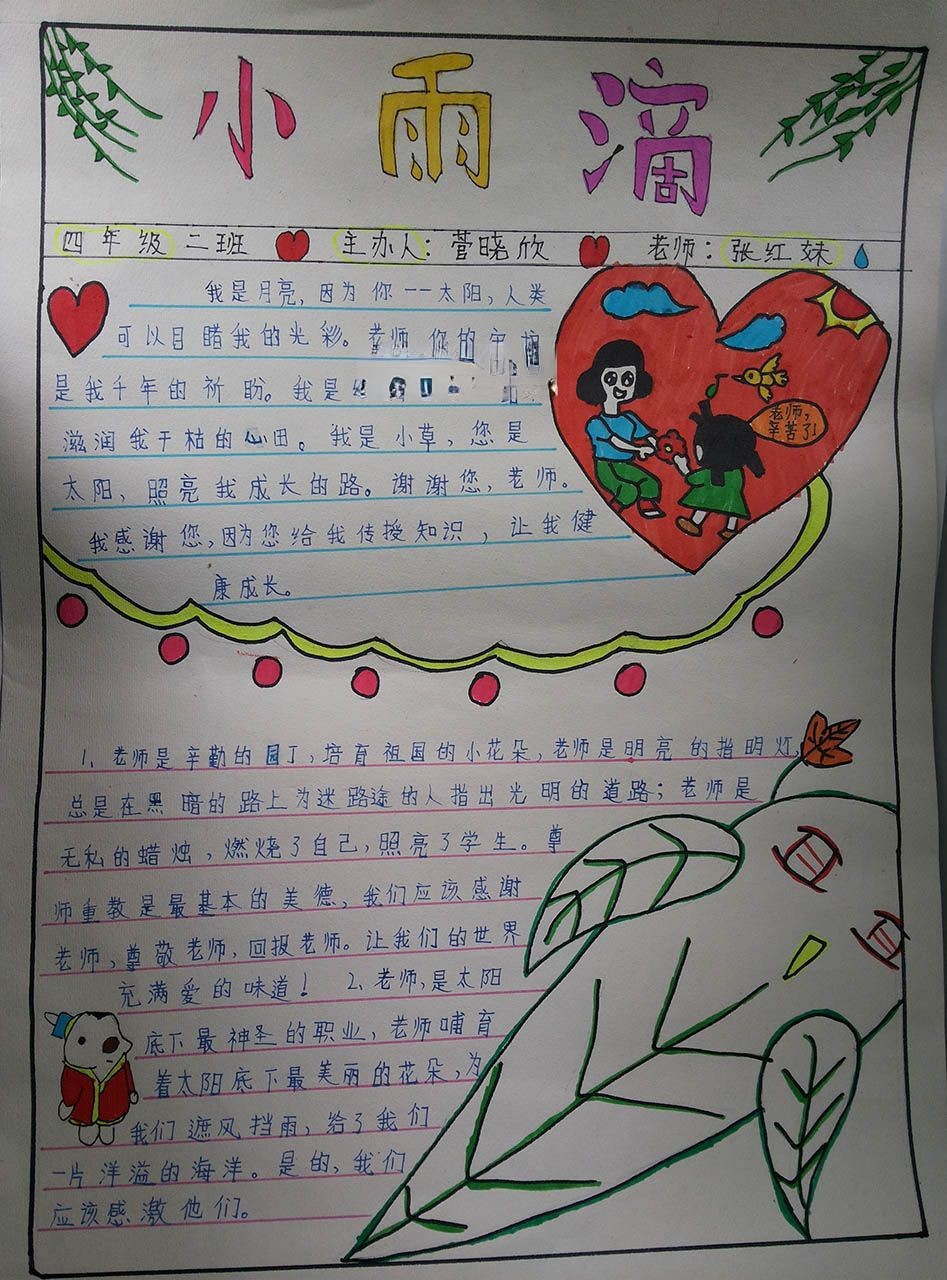 小雨滴
四年级 二班 主办人：菅晓欣 老师：张红妹
我是月亮，因为你——太阳，人类
可以目睹我的光彩。老师 你的
是我千年的祈盼。我是
滋润我干枯的心田。我是小草，您是
太阳，照亮我成长的路。谢谢您，老师。
我感谢您，因为您给我传授知识，让我健
康成长。
老师，
辛苦了！
1、老师是辛勤的园丁，培育祖国的小花朵，老师是明亮的指明灯，
总是在黑暗的路上为迷路途的人指出光明的道路；老师是
无私的蜡烛，燃烧了自己，照亮了学生。尊
师重教是最基本的美德，我们应该感谢
老师，尊敬老师，回报老师。让我们的世界
充满爱的味道！ 2、老师，是太阳
底下最神圣的职业，老师哺育
着太阳底下最美丽的花朵，为
我们遮风挡雨，给了我们
一片洋溢的海洋。是的，我们
应该感激他们。